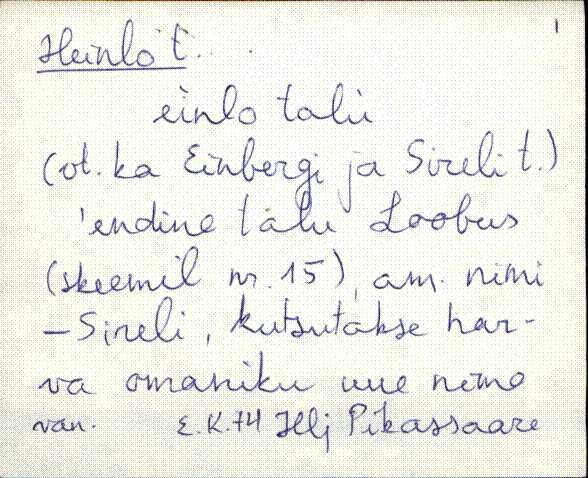 1
Heinlo t.
einlo talu
(vt. ka Einbergi ja Sireli t.)
'endine talu Loobus
(skeemil nr. 15), am. nimi
– Sireli, kutsutakse har-
va omaniku uue nime
van. E.K. 74 Hlj Pikassaare